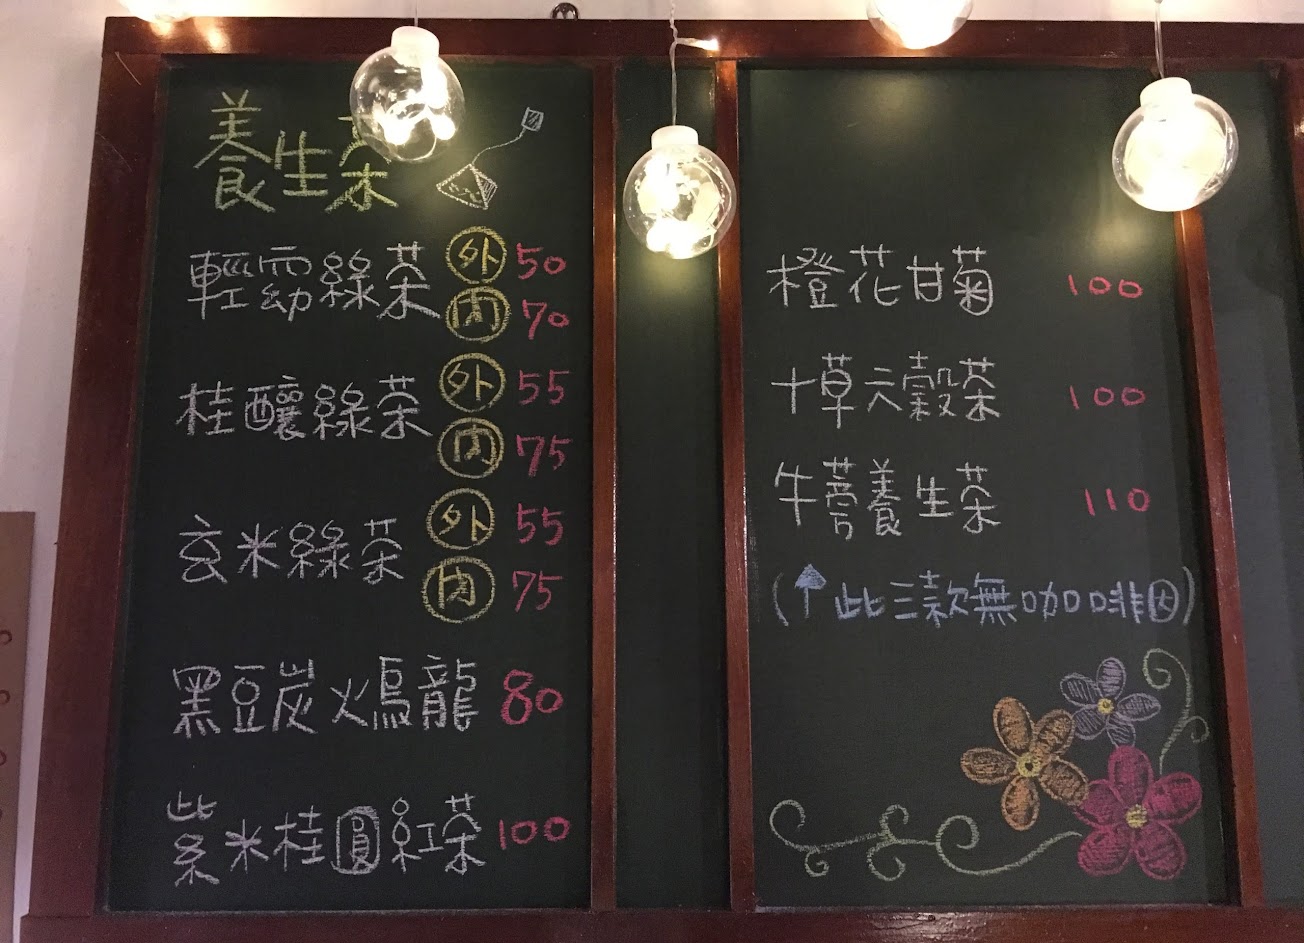 養生茶
輕窈綠茶 外 50
內 70
桂釀綠茶 外 55
內 75
玄米綠茶 外 55
內 75
黑豆炭火烏龍 80
紫米桂圓紅茶 100
橙花甘菊 100
十草六穀茶 100
牛蒡養生茶 110
(↑此三款無咖啡因)